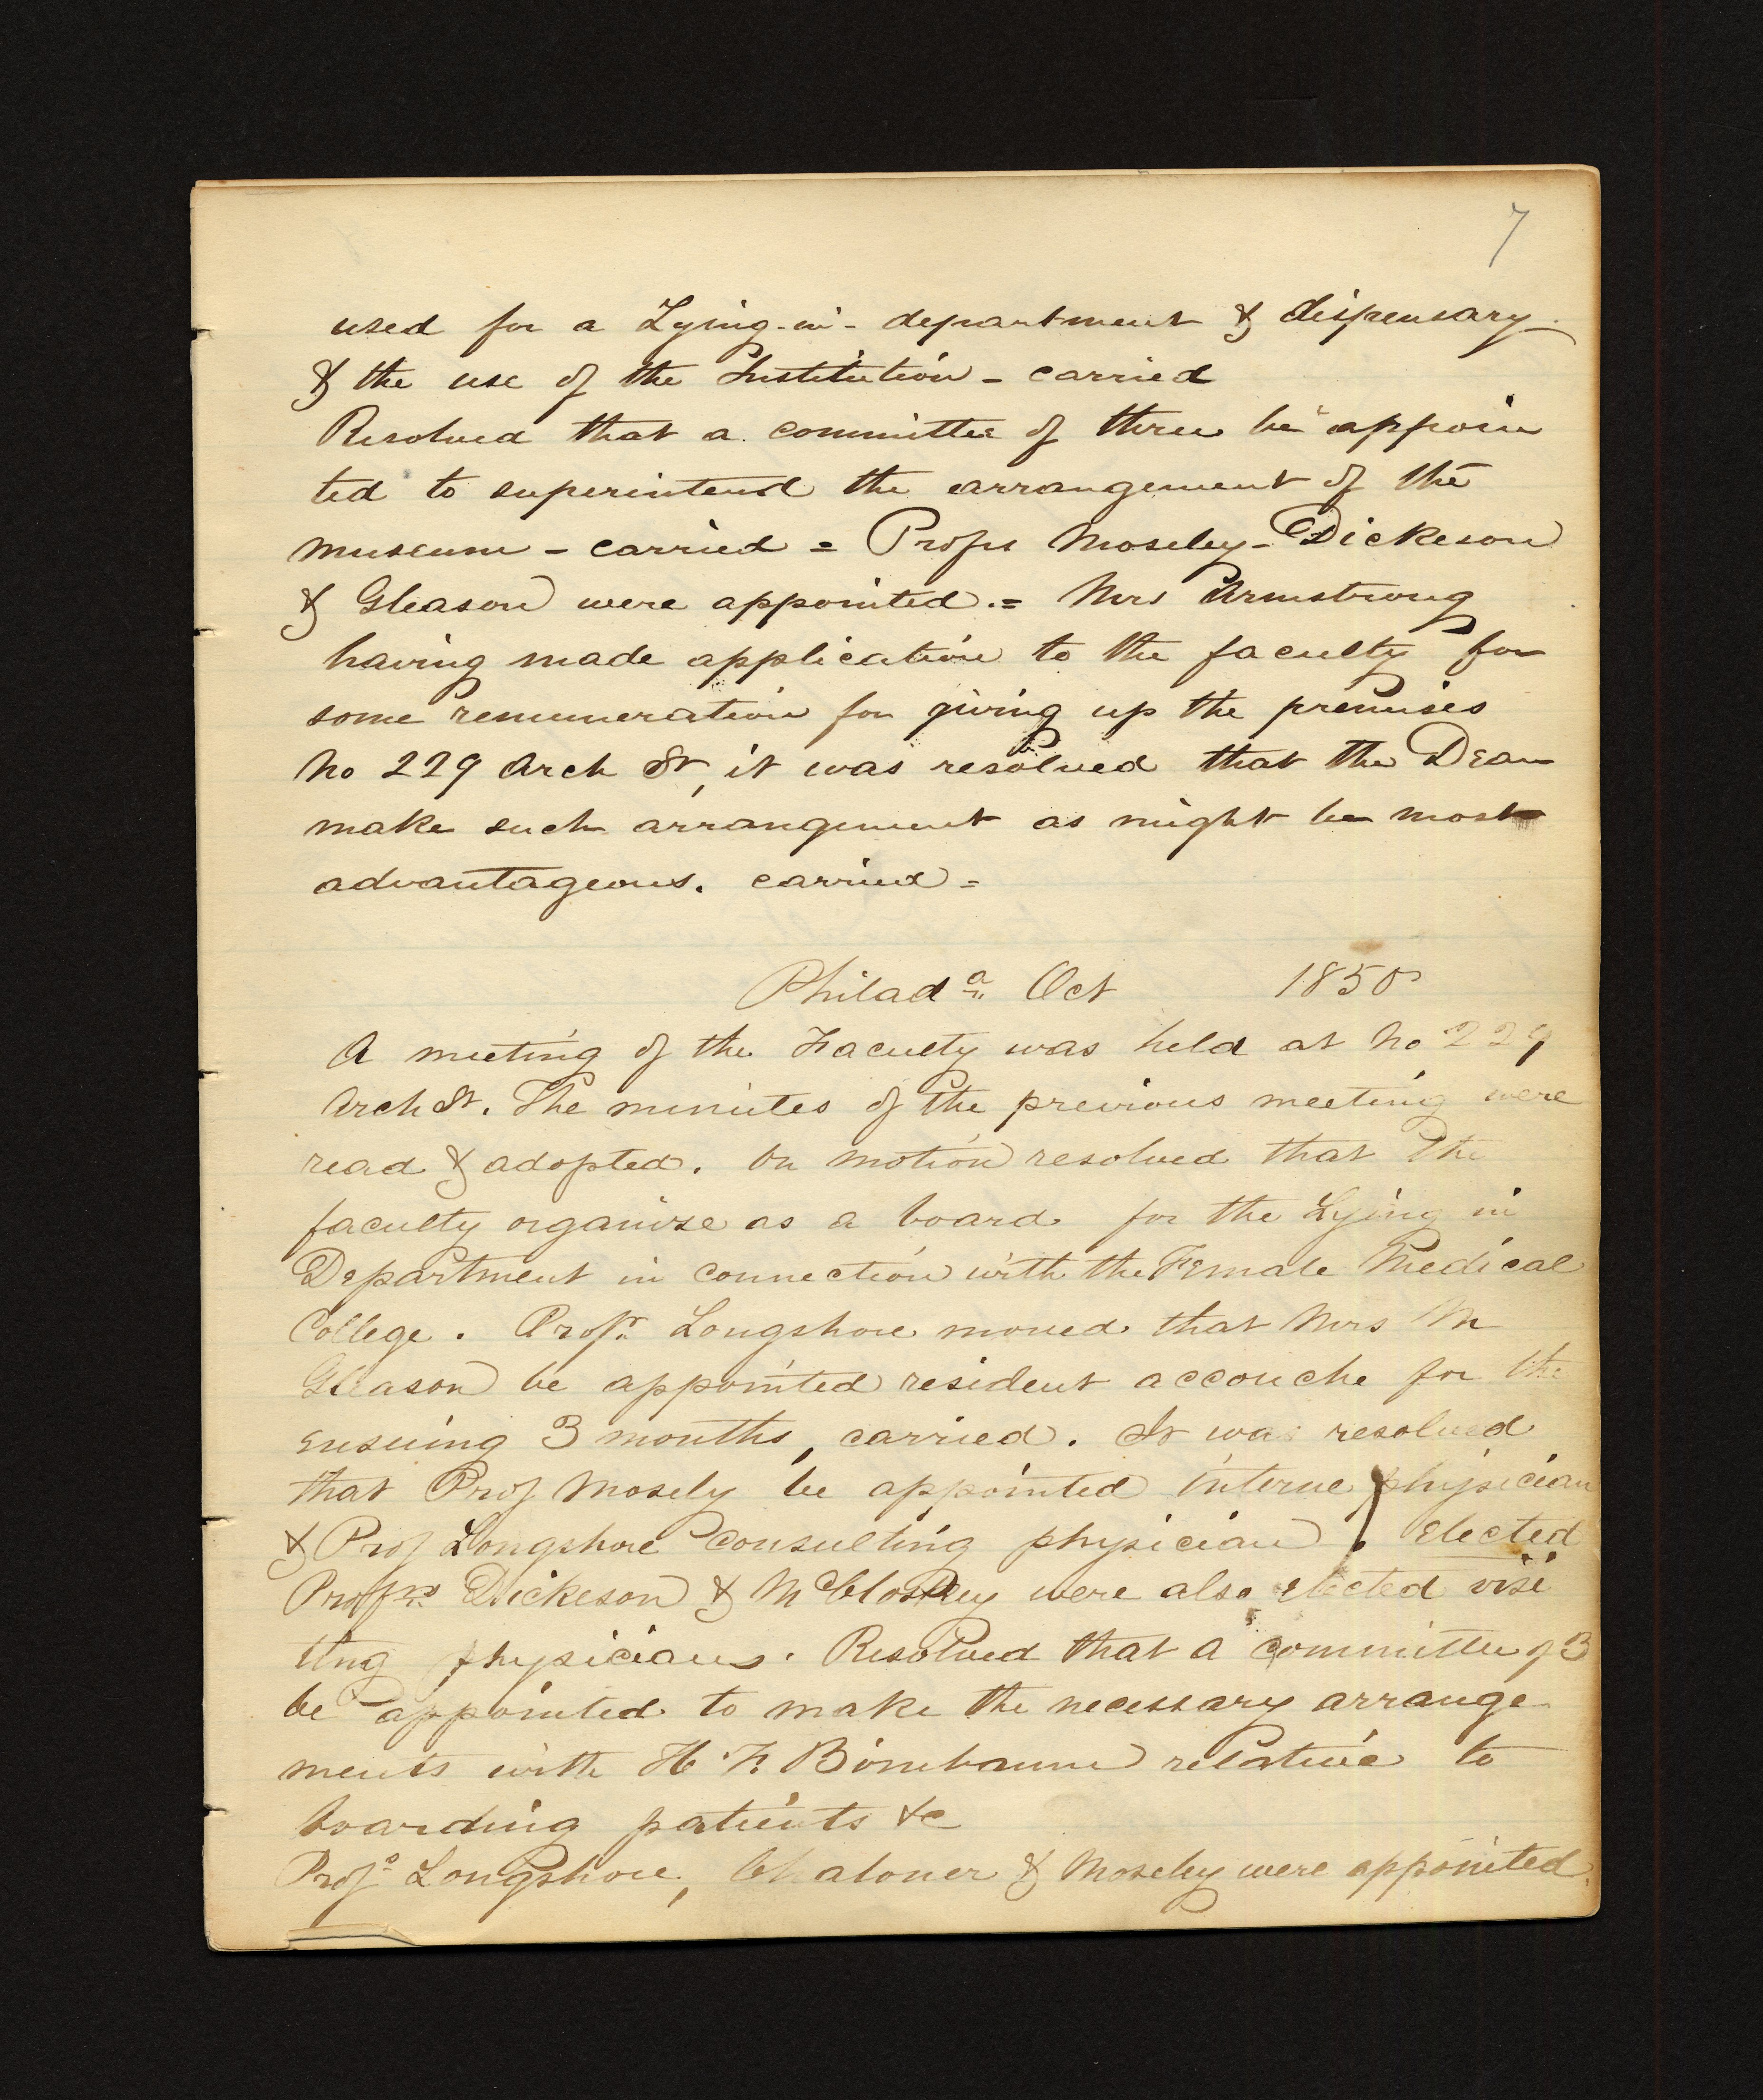 7
used for a Lying-in-department & dispensary
& the use of the Institution - carried
Resolved that a committee of three be appoin
ted to superintend the arrangement of the
museum - carried = Profrs Moseley - Dickeson
& Gleason were appointed. = Mrs Armstrong
having made application to the faculty for
some remuneration for giving up the premises
No 229 Arch St, it was resolved that the Dean
make such arrangement as might be most
advantageous. carried =
Philada Oct 1850
A meeting of the Faculty was held at No 229
Arch St. The minutes of the previous meeting were
read & adopted. On motion resolved that the
faculty organize as a board for the Lying in
Department in connection with the Female Medical
College. Profr Longshore moved that Mrs M
Gleason be appointed resident accouche for the
ensuing 3 months, carried. It was resolved
that Prof Mosely be appointed interne physician
& Prof Longshore consulting physician. Elected
Profrs Dickeson & McCloskey were also elected visi
ting physicians. Resolved that a committee of 3
be appointed to make the necessary arrange
ments with H. F. relative to
boarding patients &c
Profs Longshore, Chaloner & Moseley were appointed.